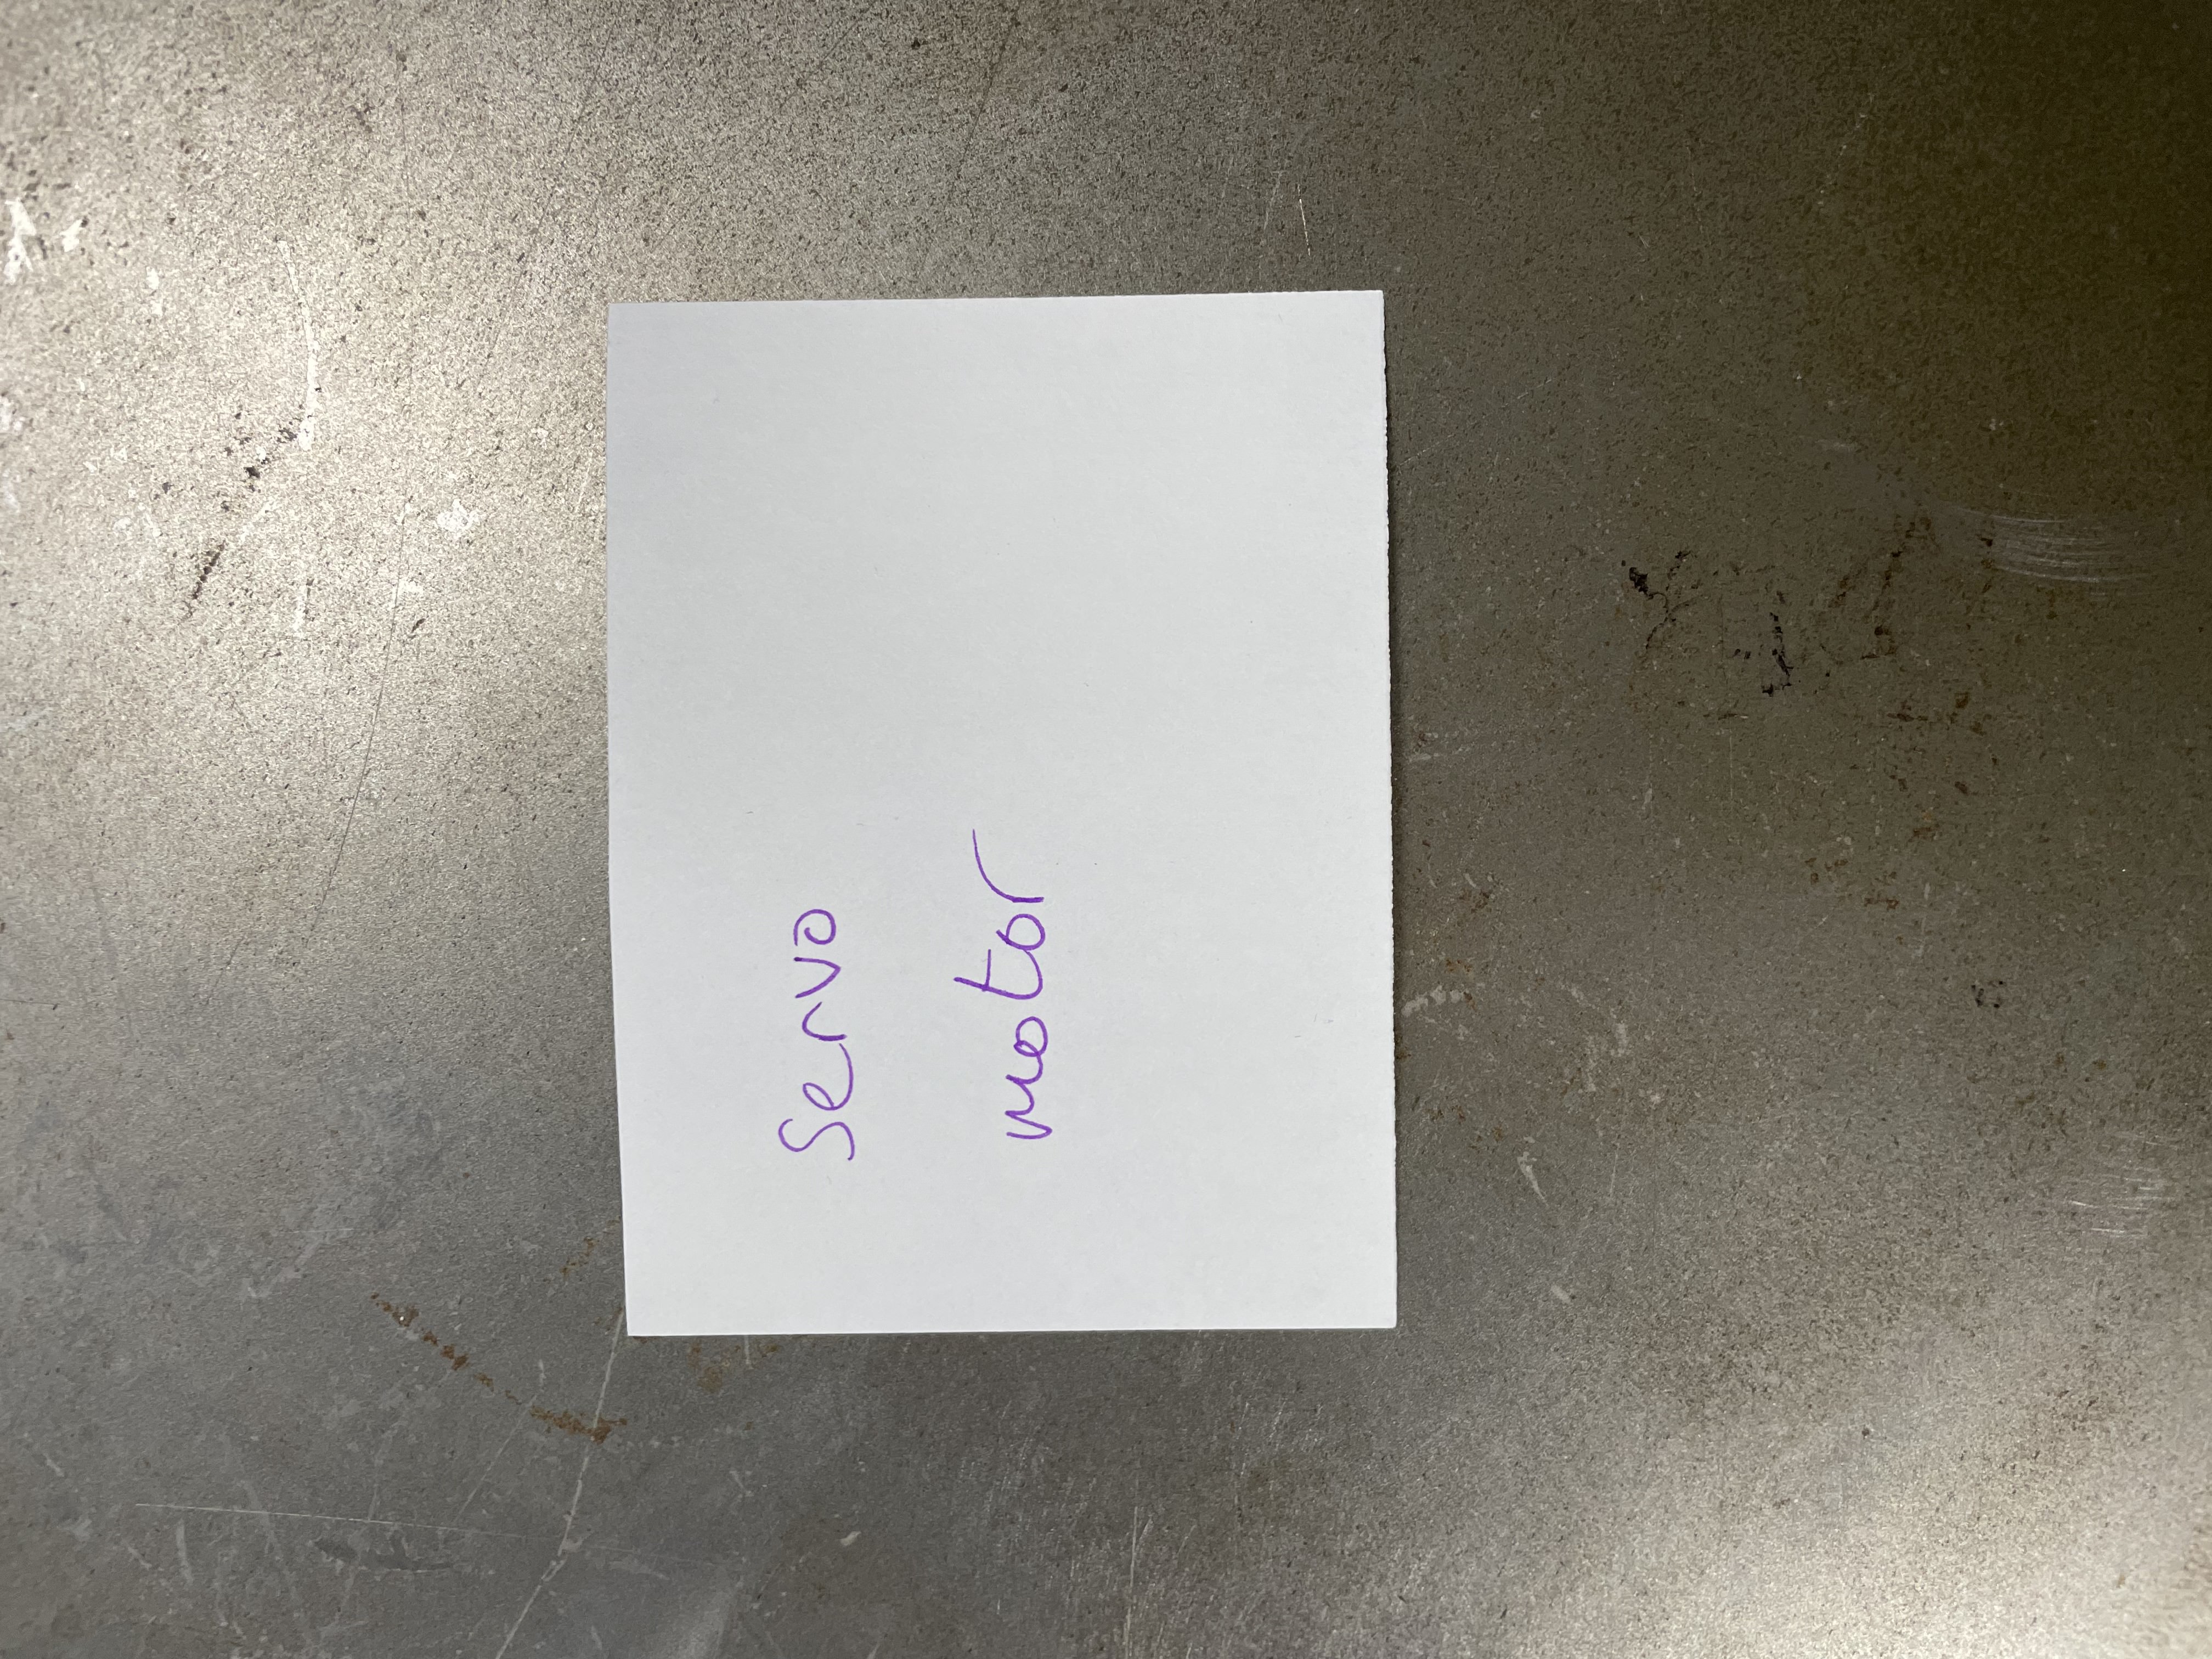 Servo
motor